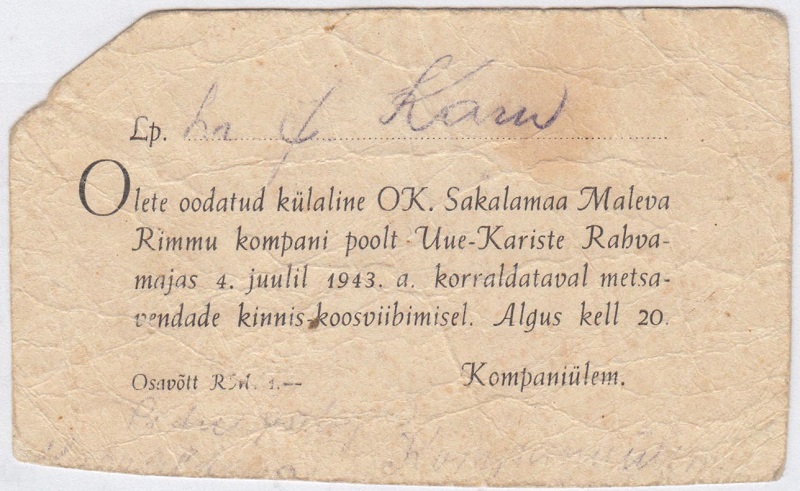 Lp. hr J. Karu
Olete oodatud külaline OK. Sakalamaa Maleva
Rimmu kompani poolt Uue-Kariste Rahva-
majas 4. juulil 1943. a. korraldataval metsa-
vendade kinnis-koosviibimisel. Algus kell 20.
Osavõtt RM. 1.—
Kompaniülem.